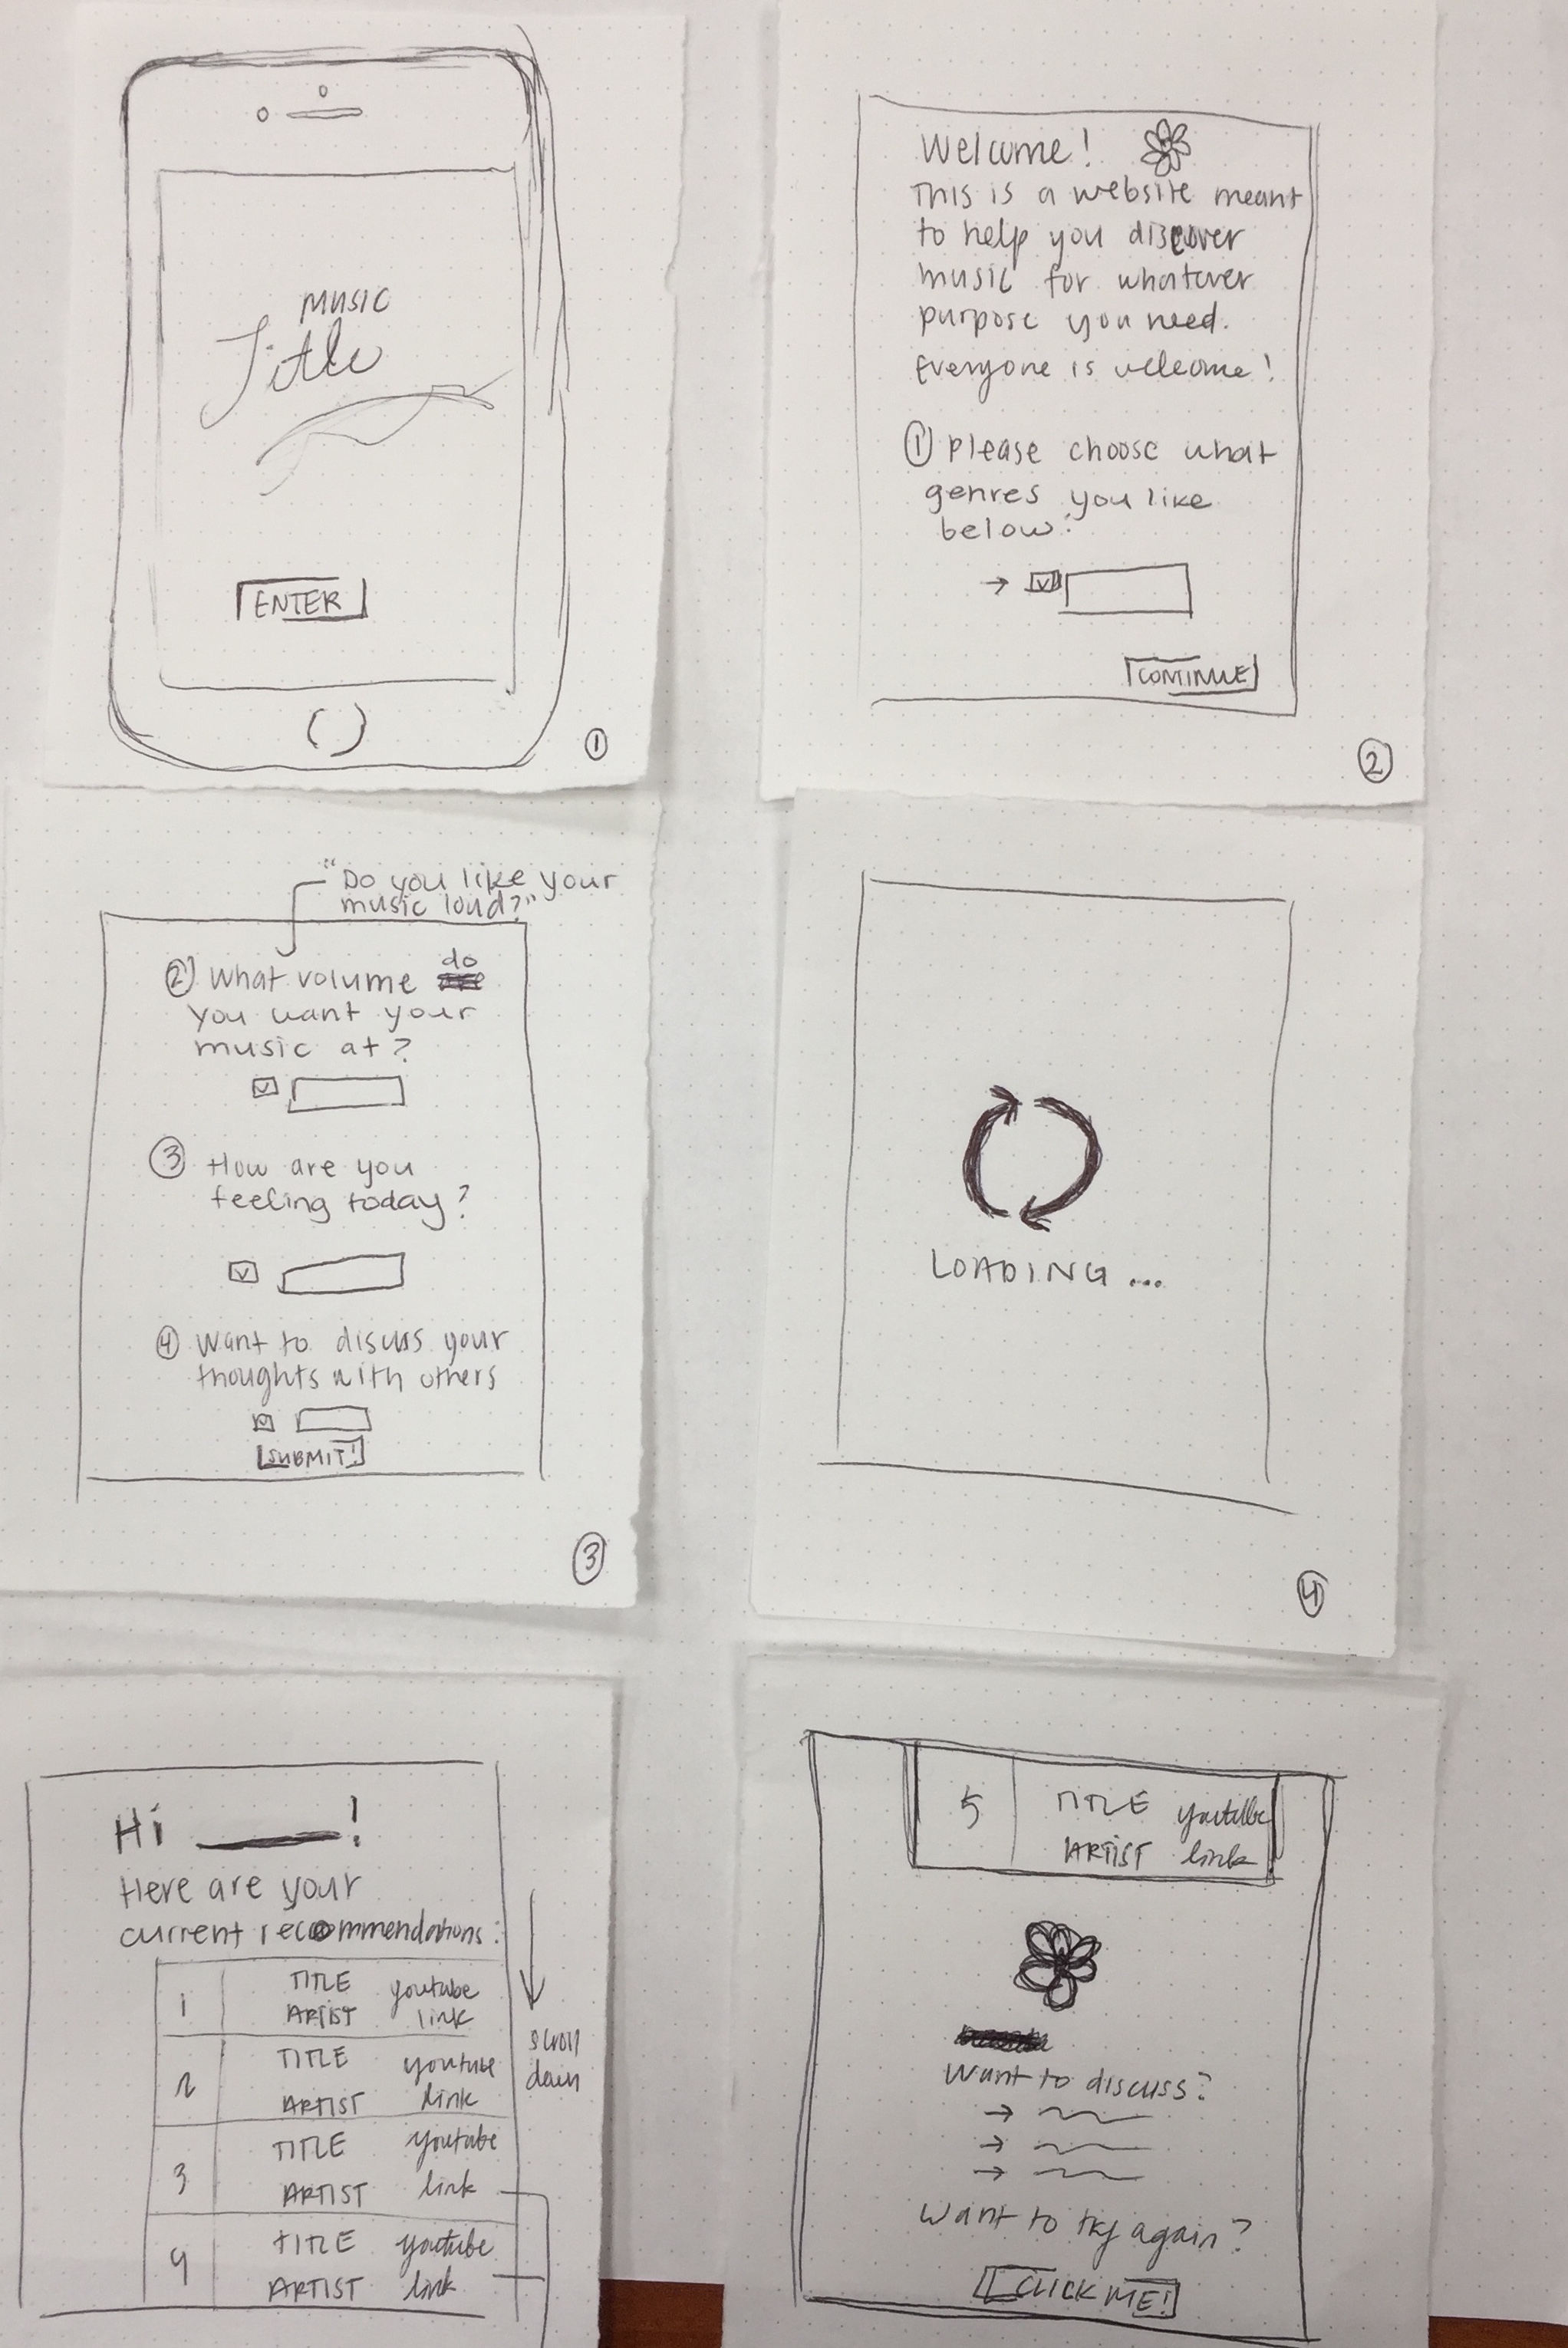 MUSIC
Title
ENTER
①
Welcome!
This is a website meant
to help you discover
music for whatever
purpose you need.
Everyone is welcome!
① Please choose what
genres you like
below:
→
CONTINUE
②
"Do you like your
music loud?"
② What volume do
you want your
music at?
③ How are you
feeling today?
④ Want to discuss your
thoughts with others
SUBMIT!
③
LOADING...
④
Hi ____!
Here are your
current recommendations:
1 TITLE youtube
ARTIST link
2 TITLE youtube
ARTIST link
3 TITLE youtube
ARTIST link
4 TITLE youtube
ARTIST link
scroll
down
5 TITLE youtube
ARTIST link
Want to discuss?
→
→
→
Want to try again?
CLICK ME!